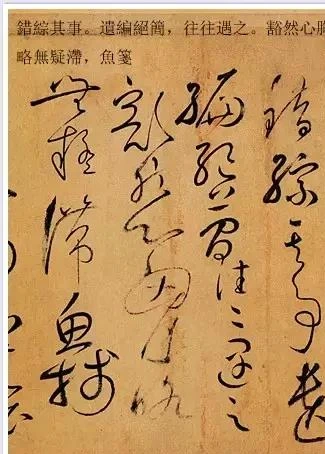 錯綜其事。遺編絕簡，往往遇之。豁然心胸
略無疑滯，魚箋
錯綜其事遺
編絕簡往往遇之
豁然心胸略
無疑滯魚箋